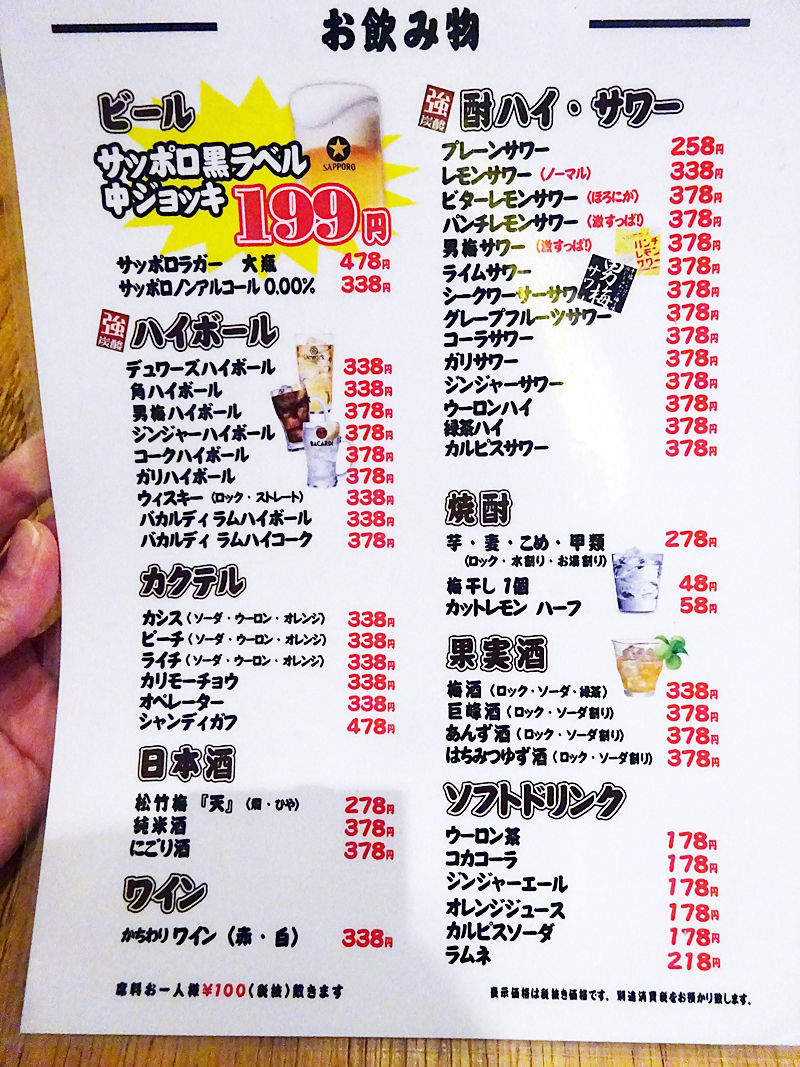 お飲み物
ビール
サッポロ黒ラベル
中ジョッキ 199円
SAPPORO
サッポロラガー 大瓶 478円
サッポロノンアルコール 0.00% 338円
強炭酸 ハイボール
デュワーズハイボール 338円
角ハイボール 338円
男梅ハイボール 378円
ジンジャーハイボール 378円
コークハイボール 378円
ガリハイボール 378円
ウィスキー(ロック・ストレート) 338円
バカルディラムハイボール 338円
バカルディ ラムハイコーク 378円
BACARDI
カクテル
カシス(ソーダ・ウーロン・オレンジ) 338円
ピーチ(ソーダ・ウーロン・オレンジ) 338円
ライチ(ソーダ・ウーロン・オレンジ) 338円
カリモーチョウ 338円
オペレーター 338円
シャンディガフ 478円
日本酒
松竹梅『天』(燗・ひや) 278円
純米酒 378円
にごり酒 378円
ワイン
かちわりワイン(赤・白) 338円
席料お一人様¥100(税抜)戴きます
強炭酸 酎ハイ・サワー
プレーンサワー 258円
レモンサワー(ノーマル) 338円
ビターレモンサワー(ほろにが) 378円
パンチレモンサワー(激すっぱ!) 378円
男梅サワー(激すっぱ!) 378円
パンチレモンサワー
男梅サワー
ライムサワー 378円
シークワーサーサワー 378円
グレープフルーツサワー 378円
コーラサワー 378円
ガリサワー 378円
ジンジャーサワー 378円
ウーロンハイ 378円
緑茶ハイ 378円
カルピスサワー 378円
焼酎
芋・麦・こめ・甲類 278円
(ロック・水割り・お湯割り)
梅干し 1個 48円
カットレモン ハーフ 58円
果実酒
梅酒(ロック・ソーダ・緑茶) 338円
巨峰酒(ロック・ソーダ割り) 378円
あんず酒(ロック・ソーダ割り) 378円
はちみつゆず酒(ロック・ソーダ割り) 378円
ソフトドリンク
ウーロン茶 178円
コカコーラ 178円
ジンジャーエール 178円
オレンジジュース 178円
カルピスソーダ 178円
ラムネ 218円
表示価格は税抜き価格です。別途消費税をお預かり致します。